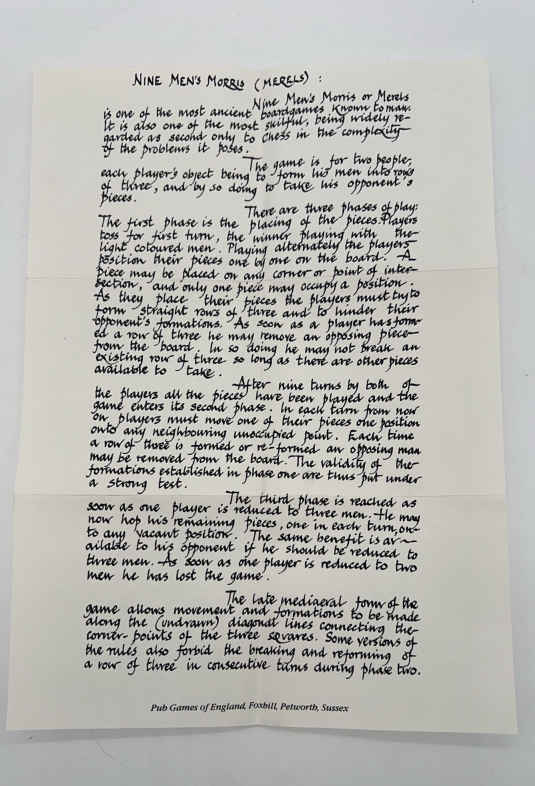 NINE MEN'S MORRIS (MERELS) :
Nine Men's Morris or Merels
is one of the most ancient boardgames known to man.
It is also one of the most skilful, being widely re-
garded as second only to Chess in the complexity
of the problems it poses.
The game is for two people,
each player's object being to form his men into rows
of three, and by so doing to take his opponent's
pieces.
There are three phases of play:
The first phase is the placing of the pieces. Players
toss for first turn, the winner playing with the
light coloured men. Playing alternately the players
position their pieces one by one on the board. A
piece may be placed on any corner or point of inter-
section, and only one piece may occupy a position.
As they place their pieces the players must try to
form straight rows of three and to hinder their
opponent's formations. As soon as a player has form-
ed a row of three he may remove an opposing piece
from the board. In so doing he may not break an
existing row of three so long as there are other pieces
available to take.
After nine turns by both of
the players all the pieces have been played and the
game enters its second phase. In each turn from now
on players must move one of their pieces one position
onto any neighbouring unoccupied point. Each time
a row of three is formed or re-formed an opposing man
may be removed from the board. The validity of the
formations established in phase one are thus put under
a strong test.
The third phase is reached as
soon as one player is reduced to three men. He may
now hop his remaining pieces, one in each turn, on-
to any vacant position. The same benefit is av-
ailable to his opponent if he should be reduced to
three men. As soon as one player is reduced to two
men he has lost the game.
The late mediaeral form of the
game allows movement and formations to be made
along the (undrawn) diagonal lines connecting the
corner-points of the three squares. Some versions of
the rules also forbid the breaking and reforming of
a row of three in consecutive turns during phase two.
Pub Games of England, Foxhill, Petworth, Sussex